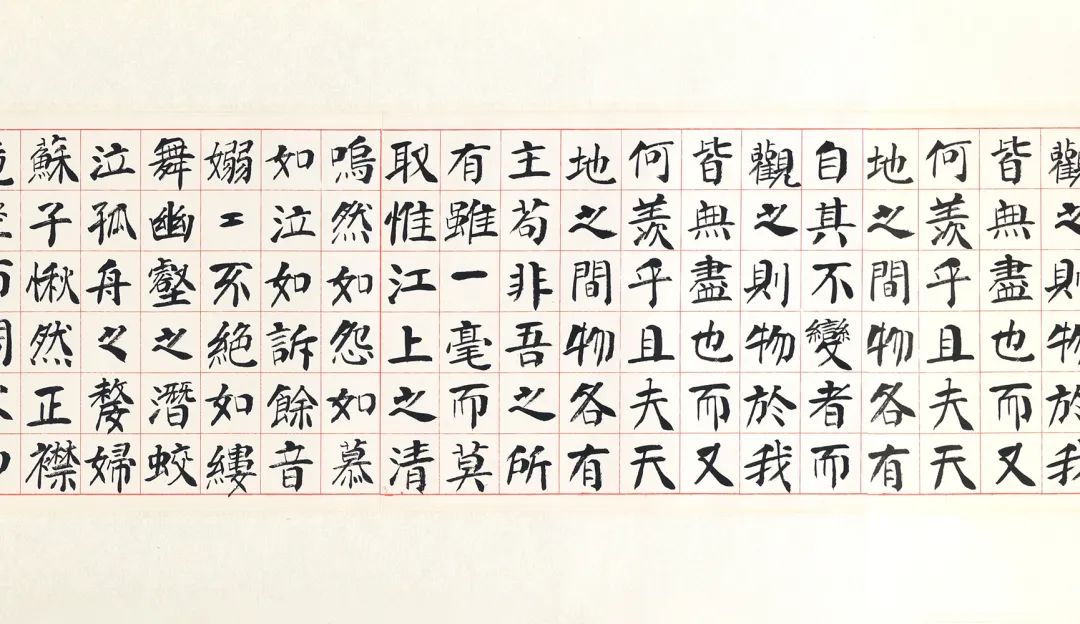 觀之則物於我
皆無盡也而又
何羨乎且夫天
地之間物各有
自其不變者而
觀之則物於我
皆無盡也而又
何羨乎且夫天
地之間物各有
主苟非吾之所
有雖一毫而莫
取惟江上之清
嗚然如怨如慕
如泣如訴餘音
嫋〻不絕如縷
舞幽壑之潛蛟
泣孤舟之嫠婦
蘇子愀然正襟